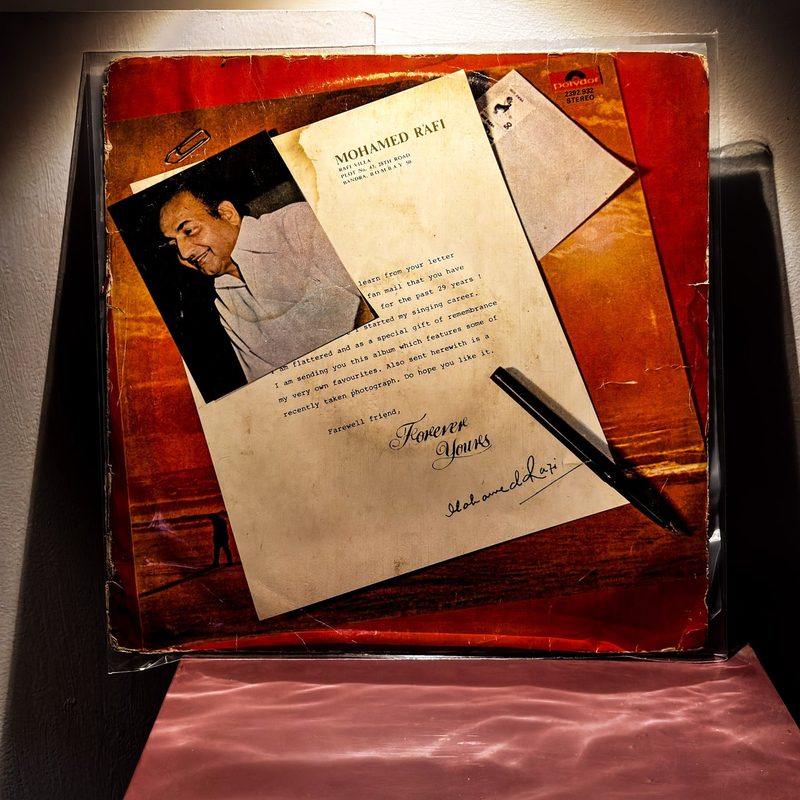 polydor
2392 932
STEREO
MOHAMED RAFI
RAFI VILLA
PLOT No. 43, 28TH ROAD
BANDRA, BOMBAY 50
learn from your letter
fan mail that you have
for the past 29 years !
started my singing career.
am flattered and as a special gift of remembrance
I am sending you this album which features some of
my very own favourites. Also sent herewith is a
recently taken photograph. Do hope you like it.
Farewell friend,
Forever
Yours
Mohamed Rafi